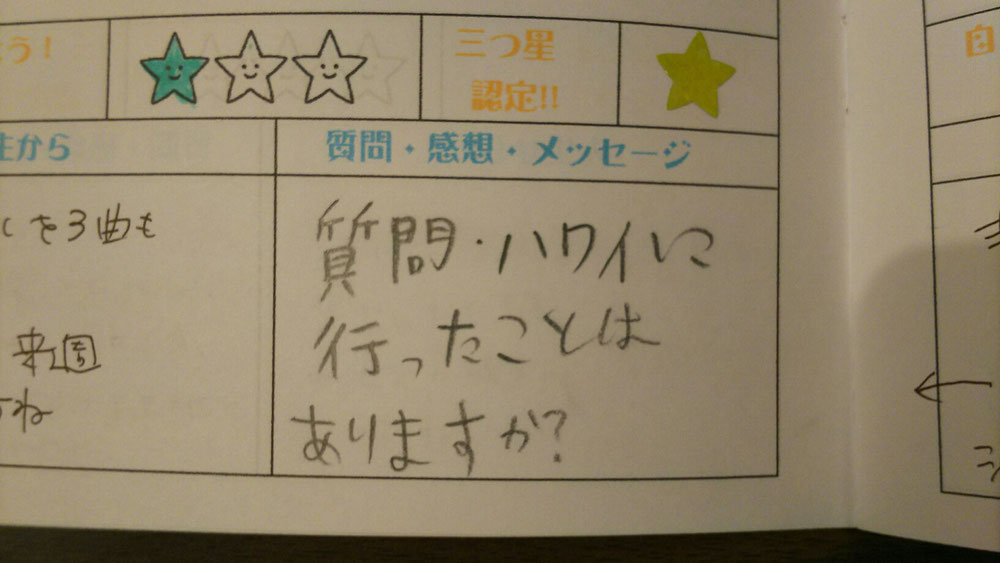 う！
三つ星
認定!!
自
生から
質問・感想・メッセージ
を3曲も
来週
ね
質問・ハワイに
行ったことは
ありますか？